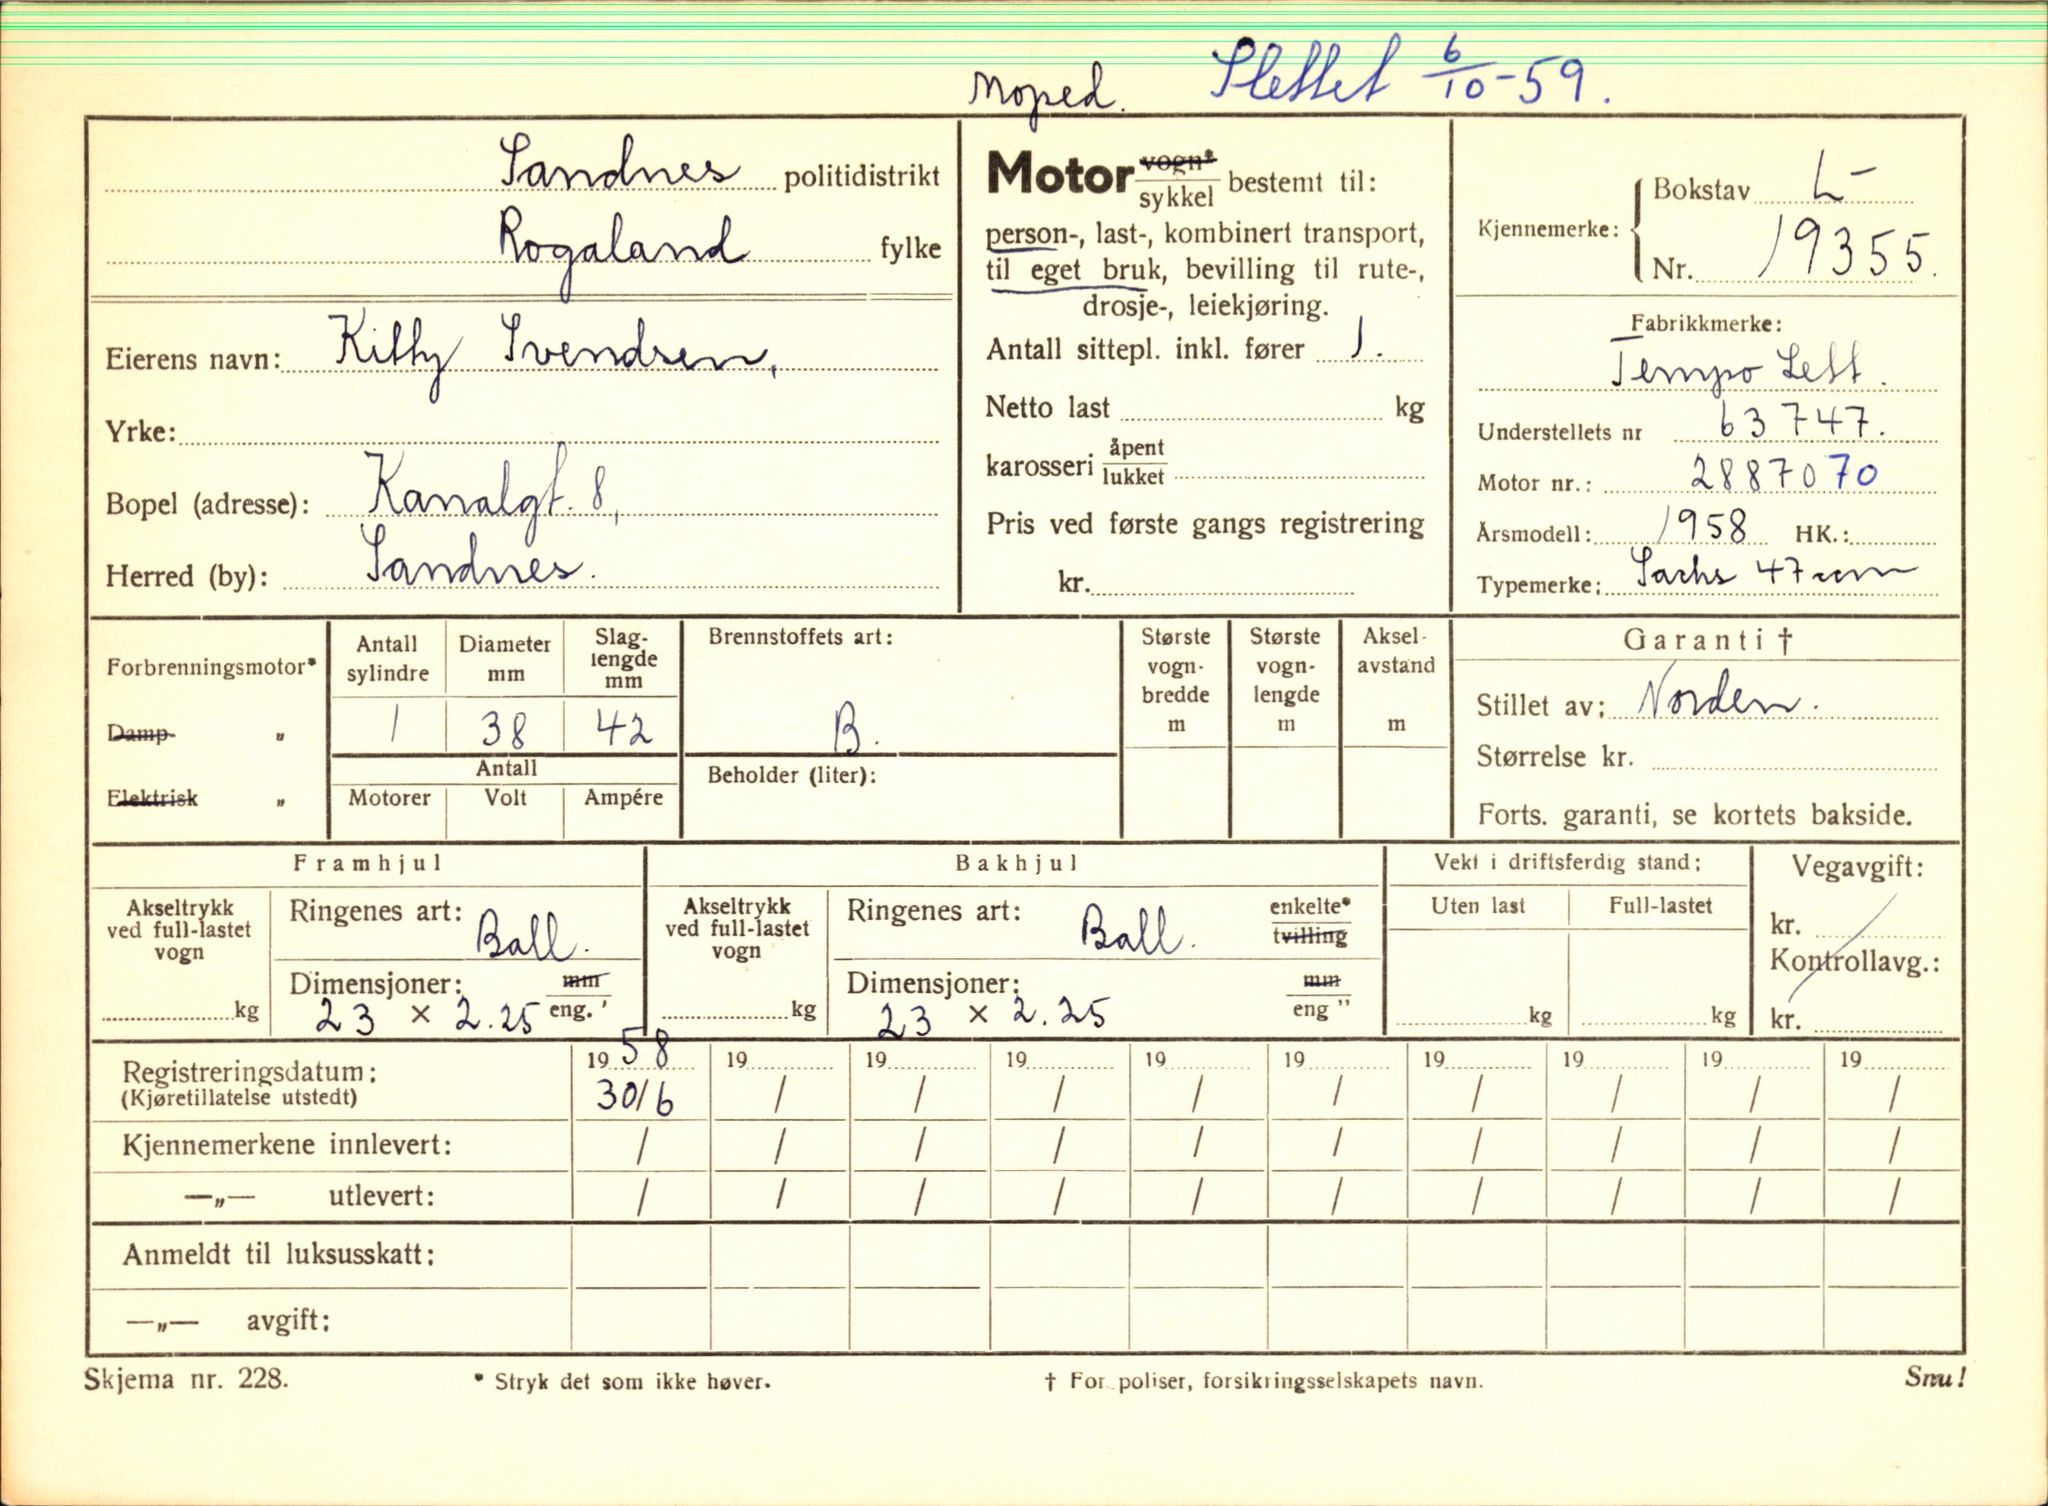 Moped. Slettet 6/10-59.
Sandnes politidistrikt
Rogaland fylke
Eierens navn: Kitty Svendsen,
Yrke:
Bopel (adresse): Kanalgt. 8,
Herred (by): Sandnes.
Motor vogn* / sykkel bestemt til:
person-, last-, kombinert transport,
til eget bruk, bevilling til rute-,
drosje-, leiekjøring.
Antall sittepl. inkl. fører 1.
Netto last kg
karosseri åpent / lukket
Pris ved første gangs registrering
kr.
Kjennemerke: Bokstav L-
Nr. 19355.
Fabrikkmerke:
Tempo Lett.
Understellets nr 63747.
Motor nr.: 2887070
Årsmodell: 1958 HK.:
Typemerke: Sachs 47 ccm
Forbrenningsmotor*
Damp "
Elektrisk "
Antall sylindre
1
Diameter mm
38
Slag-lengde mm
42
Antall
Motorer Volt Ampére
Brennstoffets art:
B.
Beholder (liter):
Største vogn-bredde m
Største vogn-lengde m
Aksel-avstand m
Garanti †
Stillet av: Norden.
Størrelse kr.
Forts. garanti, se kortets bakside.
Framhjul
Akseltrykk
ved full-lastet
vogn
kg
Ringenes art: Ball.
Dimensjoner: mm / eng. '
23 × 2.25
Bakhjul
Akseltrykk
ved full-lastet
vogn
kg
Ringenes art: Ball. enkelte* / tvilling
Dimensjoner: mm / eng "
23 × 2.25
Vekt i driftsferdig stand:
Uten last Full-lastet
kg kg
Vegavgift:
kr.
Kontrollavg.:
kr.
Registreringsdatum: 1958 19 19 19 19 19 19 19 19 19
(Kjøretillatelse utstedt) 30/6 / / / / / / / / /
Kjennemerkene innlevert: / / / / / / / / / /
—„— utlevert: / / / / / / / / / /
Anmeldt til luksusskatt:
—„— avgift:
Skjema nr. 228. * Stryk det som ikke høver. † For poliser, forsikringsselskapets navn. Snu!